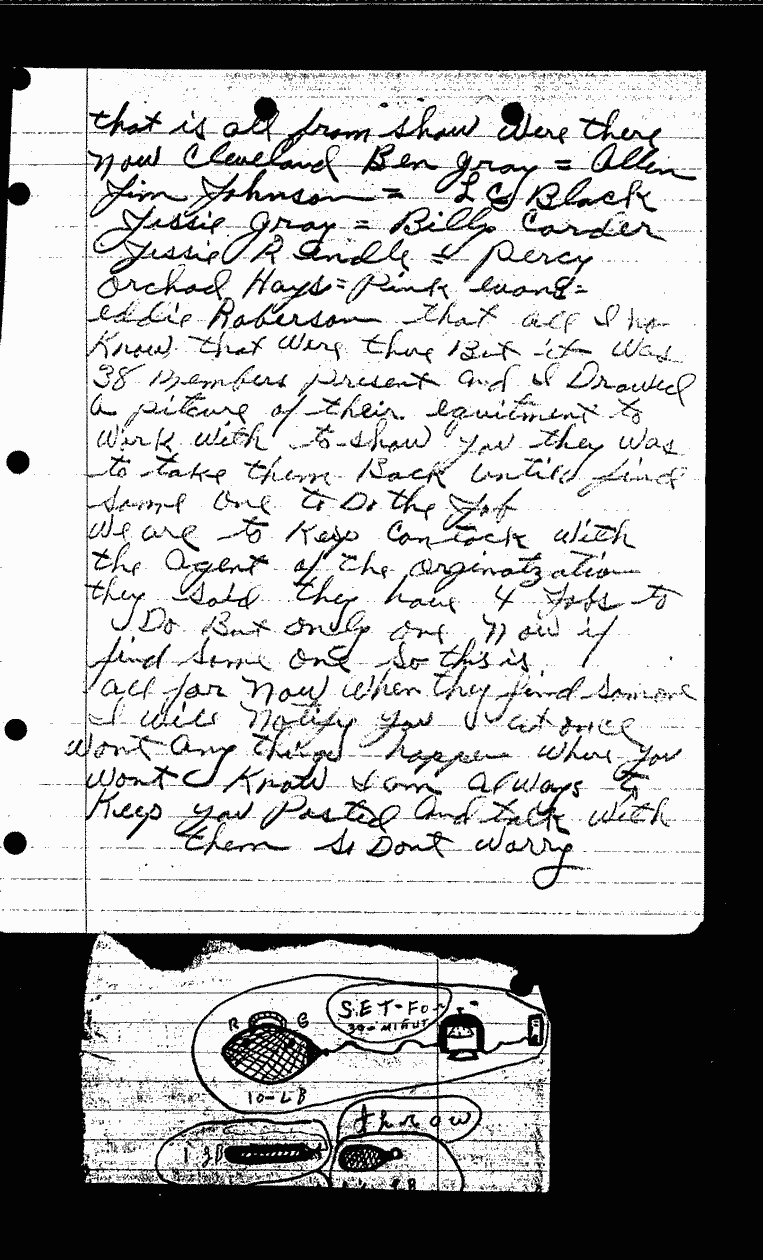 that is all from show were there
now Cleveland Ben Gray = Allen
Jim Johnson = L C Black
Jessie Gray = Billy Carder
Jessie = Percy
Orchad Hays = Pink evans =
eddie Roberson that all I no
Know that were there But it was
38 members present and I Drawed
a pitcure of their equitment to
work with to show you they was
to take them Back until find
some one to Do the Job
we are to Keep Contack with
the agent of the
they said they have 4 Jobs to
Do But only one now if
find some one so this is
all for now when they find somone
I will Notify you at once
wont any things happen where you
wont Know I am always to
Keep you Posted and talk with
them so Dont Worry
SET-FO
R G
39-MINUT
10-LB
throw
1 LB
LB